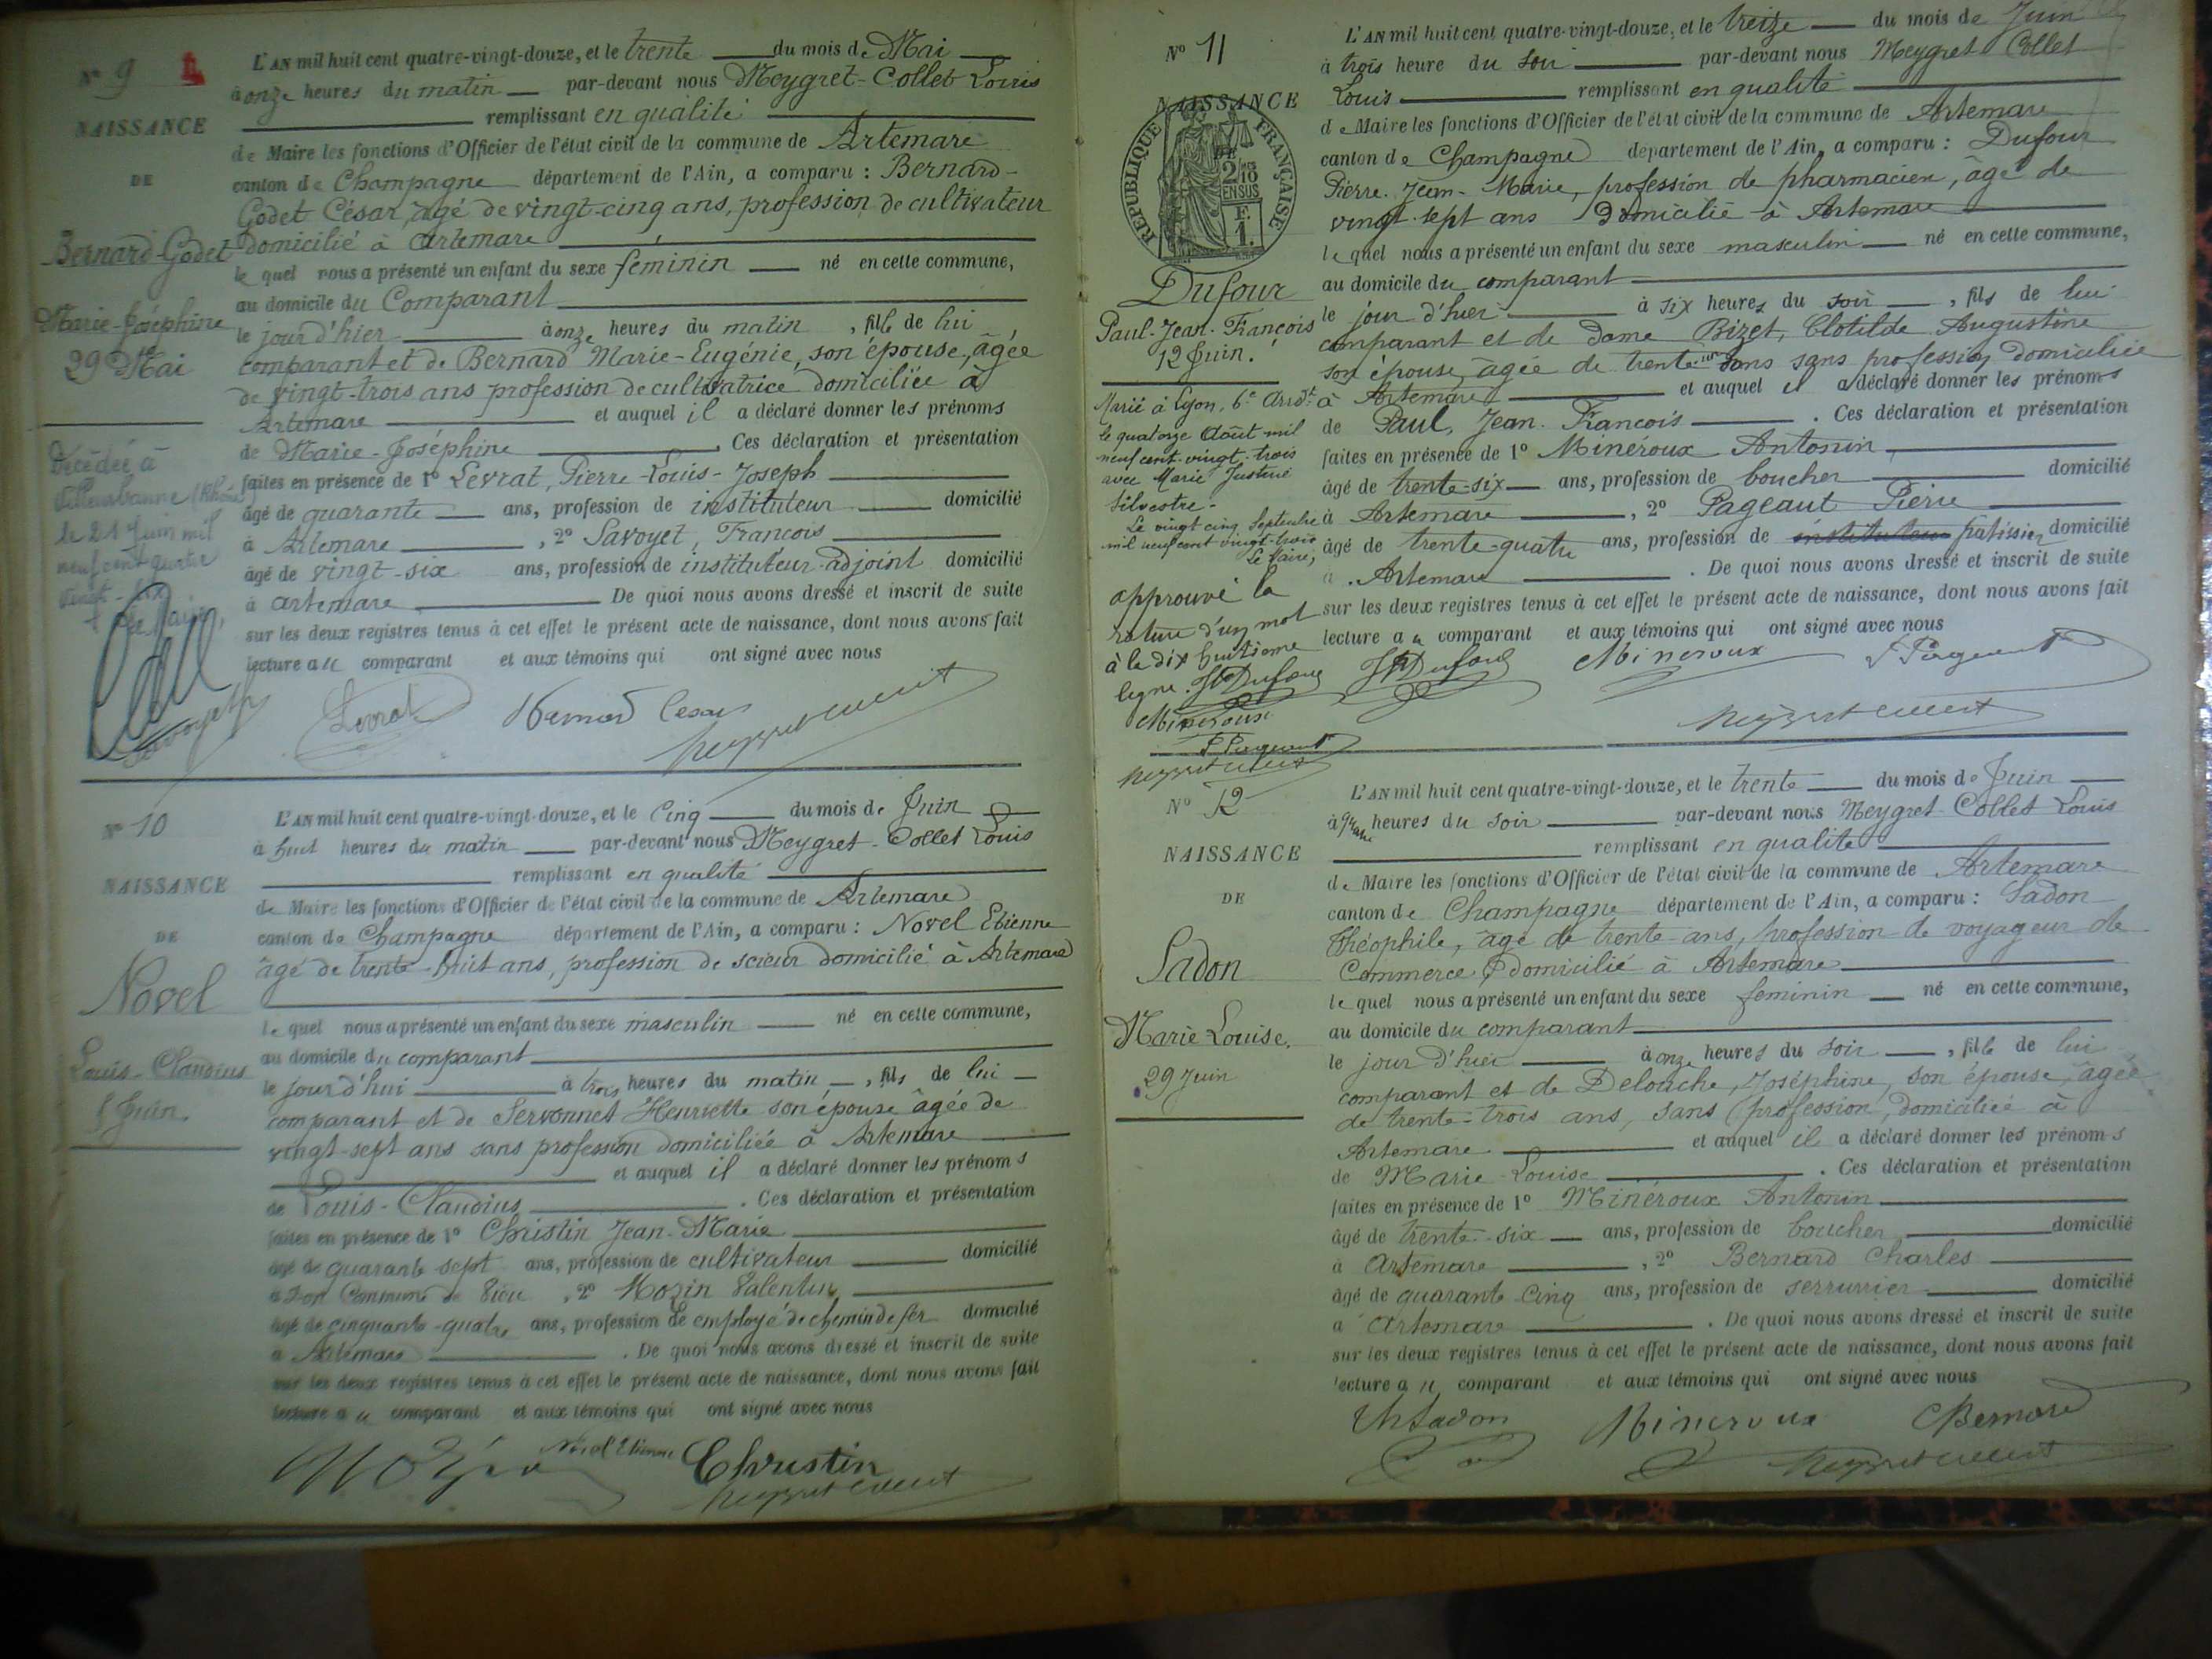 N° 9
NAISSANCE
DE
Bernard-Godet
Marie-Joséphine
29 Mai
Décédée à
Villeurbanne (Rhône)
le 21 Juin mil
neuf cent quatre
vingt-
Le Maire,
L'AN mil huit cent quatre-vingt-douze, et le trente du mois de Mai
à onze heures du matin par-devant nous Meygret-Collet Louis
remplissant en qualité
de Maire les fonctions d'Officier de l'état civil de la commune de Artemare
canton de Champagne département de l'Ain, a comparu : Bernard-
Godet César, âgé de vingt-cinq ans, profession de cultivateur
domicilié à Artemare
le quel nous a présenté un enfant du sexe féminin né en cette commune,
au domicile du Comparant
le jour d'hier à onze heures du matin, fille de lui
comparant et de Bernard Marie-Eugénie, son épouse, âgée
de vingt-trois ans profession de cultivatrice domiciliée à
Artemare et auquel il a déclaré donner les prénoms
de Marie-Joséphine. Ces déclaration et présentation
faites en présence de 1° Levrat, Pierre-Louis-Joseph
âgé de quarante ans, profession de instituteur domicilié
à Artemare, 2° Savoyet, François
âgé de vingt-six ans, profession de instituteur-adjoint domicilié
à artemare De quoi nous avons dressé et inscrit de suite
sur les deux registres tenus à cet effet le présent acte de naissance, dont nous avons fait
lecture au comparant et aux témoins qui ont signé avec nous
Levrat Bernard Cesar
N° 10
NAISSANCE
DE
Novel
Louis-Claudius
5 Juin.
L'AN mil huit cent quatre-vingt-douze, et le Cinq du mois de Juin
à huit heures du matin par-devant nous Meygret-Collet Louis
remplissant en qualité
de Maire les fonctions d'Officier de l'état civil de la commune de Artemare
canton de Champagne département de l'Ain, a comparu : Novel Etienne
âgé de trente-huit ans, profession de scieur domicilié à Artemare
le quel nous a présenté un enfant du sexe masculin né en cette commune,
au domicile du comparant
le jour d'hui à trois heures du matin, fils de lui
comparant et de Servonnet Henriette son épouse âgée de
vingt-sept ans sans profession domiciliée à Artemare
et auquel il a déclaré donner les prénoms
de Louis-Claudius. Ces déclaration et présentation
faites en présence de 1° Christin Jean-Marie
âgé de quarante sept ans, profession de cultivateur domicilié
à Don Commune de Vieu, 2° Mozin Valentin
âgé de cinquante-quatre ans, profession de employé de chemin de fer domicilié
à Artemare. De quoi nous avons dressé et inscrit de suite
sur les deux registres tenus à cet effet le présent acte de naissance, dont nous avons fait
lecture au comparant et aux témoins qui ont signé avec nous
Novel Etienne Christin
N° 11
NAISSANCE
RÉPUBLIQUE FRANÇAISE
DE
2/10
EN SUS
Dufour
Paul-Jean-François
12 Juin.
Marié à Lyon, 6e Arrdt
le quatorze Août mil
neuf cent vingt-trois
avec Marie Justine
Silvestre.
Le vingt cinq Septembre
mil neuf cent vingt-trois
Le Maire,
approuvé la
rature d'un mot
à la dix huitième
ligne.
Mineroux
L'AN mil huit cent quatre-vingt-douze, et le treize du mois de Juin
à trois heure du soir par-devant nous Meygret Collet
Louis remplissant en qualité
de Maire les fonctions d'Officier de l'état civil de la commune de Artemare
canton de Champagne département de l'Ain, a comparu : Dufour
Pierre-Jean-Marie, profession de pharmacien, âgé de
vingt-sept ans Domicilié à Artemare
le quel nous a présenté un enfant du sexe masculin né en cette commune,
au domicile du comparant
le jour d'hier à six heures du soir, fils de lui
comparant et de Dame Bizet, Clotilde Augustine
son épouse, âgée de trente-un ans sans profession domiciliée
à Artemare et auquel il a déclaré donner les prénoms
de Paul, Jean-François. Ces déclaration et présentation
faites en présence de 1° Minéroux Antonin
âgé de trente-six ans, profession de boucher domicilié
à Artemare, 2° Pageaut Pierre
âgé de trente-quatre ans, profession de instituteur patissier domicilié
à Artemare. De quoi nous avons dressé et inscrit de suite
sur les deux registres tenus à cet effet le présent acte de naissance, dont nous avons fait
lecture au comparant et aux témoins qui ont signé avec nous
Dufour Mineroux P Pageaut
N° 12
NAISSANCE
DE
Sadon
Marie Louise.
29 Juin
L'AN mil huit cent quatre-vingt-douze, et le trente du mois de Juin
à quatre heures du soir par-devant nous Meygret-Collet Louis
remplissant en qualité
de Maire les fonctions d'Officier de l'état civil de la commune de Artemare
canton de Champagne département de l'Ain, a comparu : Sadon
Théophile, âgé de trente-ans, profession de voyageur de
Commerce, domicilié à Artemare
le quel nous a présenté un enfant du sexe feminin né en cette commune,
au domicile du comparant
le jour d'hier à onze heures du soir, fille de lui
comparant et de Delouche, Joséphine, son épouse, âgée
de trente-trois ans, sans profession, domiciliée à
Artemare et auquel il a déclaré donner les prénoms
de Marie-Louise. Ces déclaration et présentation
faites en présence de 1° Minéroux Antonin
âgé de trente-six ans, profession de boucher domicilié
à Artemare, 2° Bernard Charles
âgé de quarante-cinq ans, profession de serrurier domicilié
à Artemare. De quoi nous avons dressé et inscrit de suite
sur les deux registres tenus à cet effet le présent acte de naissance, dont nous avons fait
lecture au comparant et aux témoins qui ont signé avec nous
Th Sadon Mineroux CBernard